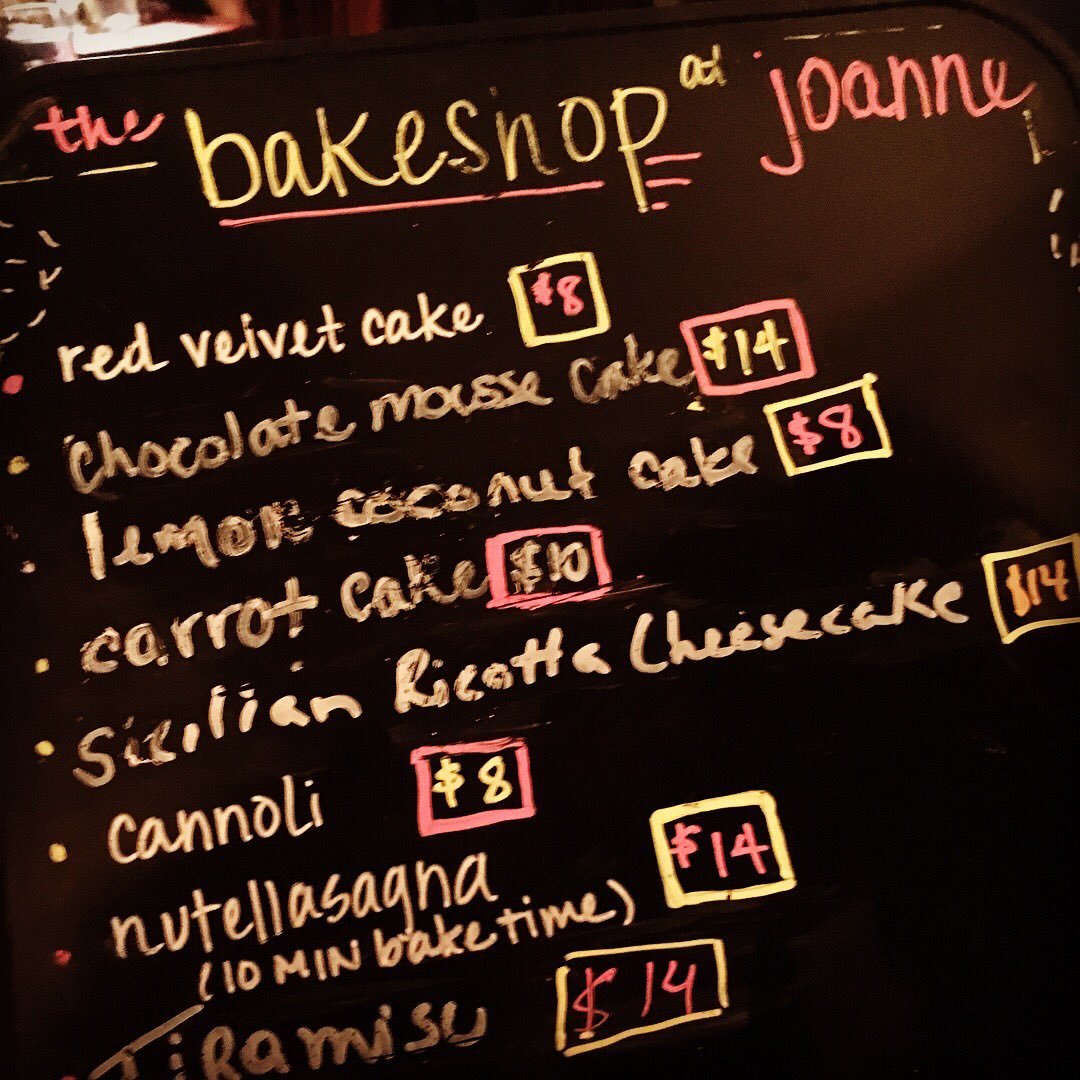 the bakeshop at joanne
red velvet cake $8
chocolate mousse cake $14
lemon coconut cake $8
carrot cake $10
Sicilian Ricotta Cheesecake $14
cannoli $8
nutellasagna $14
(10 MIN bake time)
Tiramisu $14